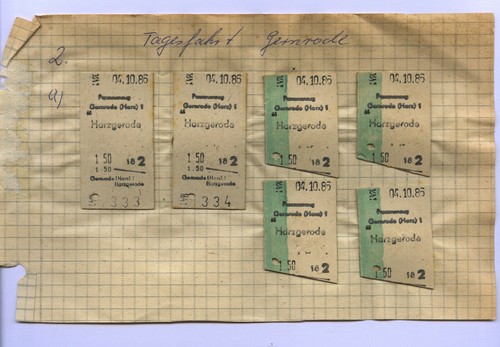 Tagesfahrt Gernrode
2.
a)
04.10.86
Personenzug
Gernrode (Harz) 1
Harzgerode
1.50 18 2
1.50
Gernrode (Harz) 1
Harzgerode
333
04.10.86
Personenzug
Gernrode (Harz) 1
Harzgerode
1.50 18 2
1.50
Gernrode (Harz) 1
Harzgerode
334
04.10.86
Personenzug
Gernrode (Harz) 1
Harzgerode
1.50 18 2
04.10.86
Personenzug
Gernrode (Harz) 1
Harzgerode
1.50 18 2
04.10.86
Personenzug
Gernrode (Harz) 1
Harzgerode
1.50 18 2
04.10.86
Personenzug
Gernrode (Harz) 1
Harzgerode
1.50 18 2